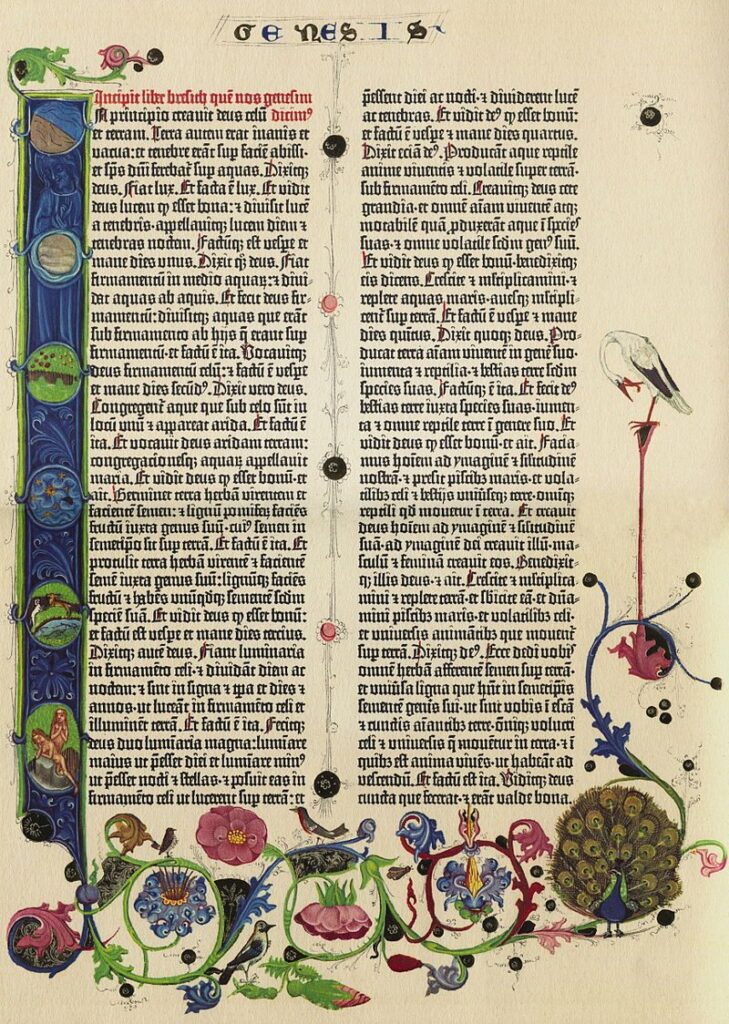 GENESIS
Incipit liber bresith quē nos genesim
In principio creavit deus celū dicim⁹
et terram. Terra autem erat inanis et
vacua: et tenebre erāt sup faciē abissi·
et sp̄s dn̄i ferebat͛ sup aquas. Dixitqꝫ
deus. Fiat lux. Et facta ē lux. Et vidit
deus lucem ꝙ esset bona: ⁊ divisit lucē
a tenebris·appellavitqꝫ lucem diem et
tenebras noctem. Factūqꝫ est vespe et
mane dies unus. Dixit qꝫ deus. Fiat
firmamentū in medio aquaꝝ: ⁊ divi-
dat aquas ab aquis. Et fecit deus fir-
mamentū: divisitqꝫ aquas que erāt
sub firmamento ab hijs q̄ erant sup
firmamentū: et factū ē ita. Vocavitqꝫ
deus firmamentū celū: ⁊ factū ē vespe
et mane dies secūd⁹. Dixit vero deus.
Congregent͛ aque que sub celo sūt in
locū unū ⁊ appareat arida. Et factū ē
ita. Et vocavit deus aridam terram:
congregacionesqꝫ aquaꝝ appellavit
maria. Et vidit deus ꝙ esset bonū·et
ait. Germinet terra herbā virentem et
facientē semen: ⁊ lignū pomiferū faciēs
fructū iuxta genus suū·cui⁹ semen in
semetipo sit sup terrā. Et factū ē ita. Et
protulit terra herbā virentē ⁊ facientē
semē iuxta genus suū: lignūqꝫ faciēs
fructū ⁊ habēs unūqdqꝫ sementē scdm
speciē suā. Et vidit deus ꝙ esset bonū:
et factū est vespe et mane dies tercius.
Dixitqꝫ autē deus. Fiant luminaria
in firmamēto celi·⁊ dividāt diem ac
noctem: ⁊ sint in signa ⁊ tpa et dies ⁊
annos·ut luceāt in firmamēto celi et
illuminēt terrā. Et factū ē ita. Fecitqꝫ
deus duo luminaria magna: lumiare
maius ut pesset diei et lumiare min⁹
ut pesset nocti ⁊ stellas·⁊ posuit eas in
firmamēto celi ut lucerent sup terrā: et
pessent diei ac nocti·⁊ dividerent lucē
ac tenebras. Et vidit de⁹ ꝙ esset bonū:
et factū ē vespe ⁊ mane dies quartus.
Dixit eciam de⁹. Producant aque reptile
anime viventis ⁊ volatile super terrā·
sub firmamēto celi. Creavitqꝫ deus cete
grandia·et omnē aīam viventē atqꝫ
motabilem quā pduxerāt aque ī species
suas·⁊ omne volatile scdm gen⁹ suū.
Et vidit deus ꝙ esset bonū·benedixitqꝫ
eis dicens. Crescite ⁊ mltiplicamini·⁊
replete aquas maris·avesqꝫ mltipli-
cent͛ sup terrā. Et factū ē vespe ⁊ mane
dies quītus. Dixit quoqꝫ deus. Pro-
ducat terra aīam viventē in genē suo·
iumenta ⁊ reptilia·⁊ bestias terre scdm
species suas. Factūqꝫ ē ita. Et fecit de⁹
bestias terre iuxta species suas·iumen-
ta ⁊ omne reptile terre ī genere suo. Et
vidit deus ꝙ esset bonū·et ait. Facia-
mus hoīem ad ymaginē ⁊ silitudinē
nostrā·⁊ presit piscibꝫ maris·et vola-
tilibꝫ celi ⁊ bestijs univseqꝫ terre·omīqꝫ
reptili qd movetur ī terra. Et creavit
deus hoīem ad ymaginē ⁊ silitudinē
suā·ad ymaginē dei creavit illū·ma-
sculū ⁊ feminā creavit eos. Benedixit-
qꝫ illis deus·⁊ ait. Crescite ⁊ mltiplica-
mini ⁊ replete terrā·et sbicite eā·et dn̄a-
mini piscibꝫ maris·et volatilibꝫ celi·
et universis animātibꝫ que movent͛
sup terrā. Dixitqꝫ de⁹. Ecce dedi vobis
omnē herbā afferentē semen sup terrā·
et univsa ligna que hn̄t in semetipis
sementē genis sui·ut sint vobis ī escā
⁊ cunctis aīantibꝫ terre·om̄iqꝫ volucri
celi ⁊ universis q̄ moventur in terra·⁊ ī
quibꝫ est anima vivēs·ut habeāt ad
vescendū. Et factū est ita. Viditqꝫ deus
cuncta que fecerat·⁊ erāt valde bona.